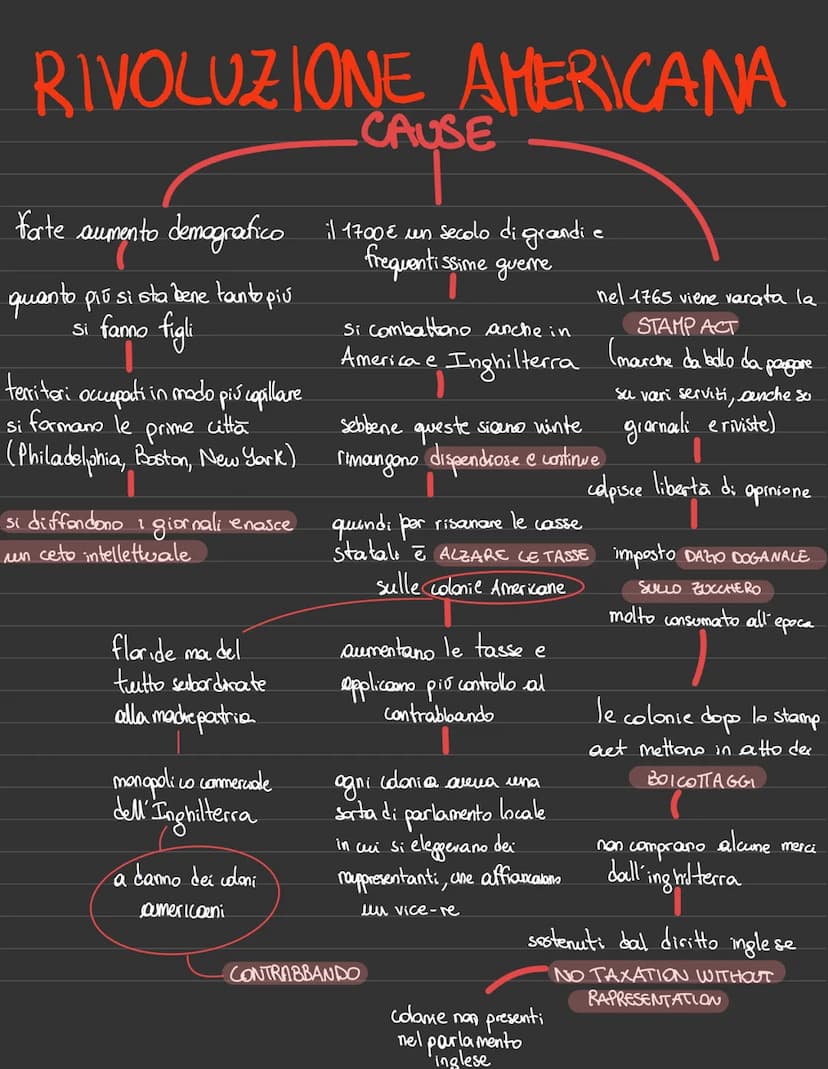 RIVOLUZIONE AMERICANA
CAUSE
forte aumento demografico
quanto più si sta bene tanto più
si fanno figli
territori occupati in modo più capillare
si formano le prime città
(Philadelphia, Boston, New York)
si diffondono i giornali e nasce
un ceto intellettuale
il 1700 è un secolo di grandi e
frequentissime guerre
si combattono anche in
America e Inghilterra
sebbene queste siano vinte
rimangono dispendiose e continue
quindi per risanare le casse
statali è ALZARE LE TASSE
sulle colonie Americane
floride ma del
tutto subordinate
alla madrepatria
monopolico commerciale
dell'Inghilterra
a danno dei coloni
americani
CONTRABBANDO
aumentano le tasse e
applicano più controllo al
contrabbando
ogni colonia aveva una
sorta di parlamento locale
in cui si eleggevano dei
rappresentanti, che affiancavano
un vice-re
nel 1765 viene varata la
STAMP ACT
(marche da bollo da pagare
su vari serviti, anche su
giornali e riviste)
colpisce libertà di opinione
imposto DAZIO DOGANALE
SULLO ZUCCHERO
molto consumato all'epoca
le colonie dopo lo stamp
act mettono in atto dei
BOICOTTAGGI
non comprano alcune merci
dall'inghilterra
sostenuti dal diritto inglese
NO TAXATION WITHOUT
RAPRESENTATION
colonie non presenti
nel parlamento
inglese